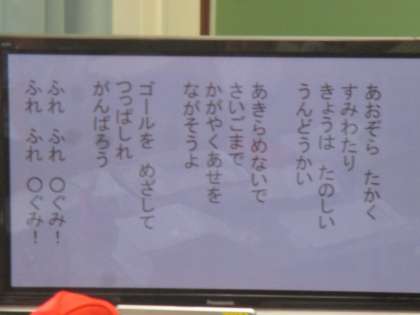 あおぞら　たかく
すみわたり
きょうは　たのしい
うんどうかい
あきらめないで
さいごまで
かがやくあせを
ながそうよ
ゴールを　めざして
つっぱしれ
がんばろう
ふれ　ふれ　〇ぐみ！
ふれ　ふれ　〇ぐみ！
Panasonic